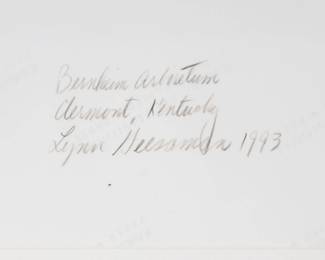 Bernheim Arboretum
Clermont, Kentucky
Lynn Geesaman 1993